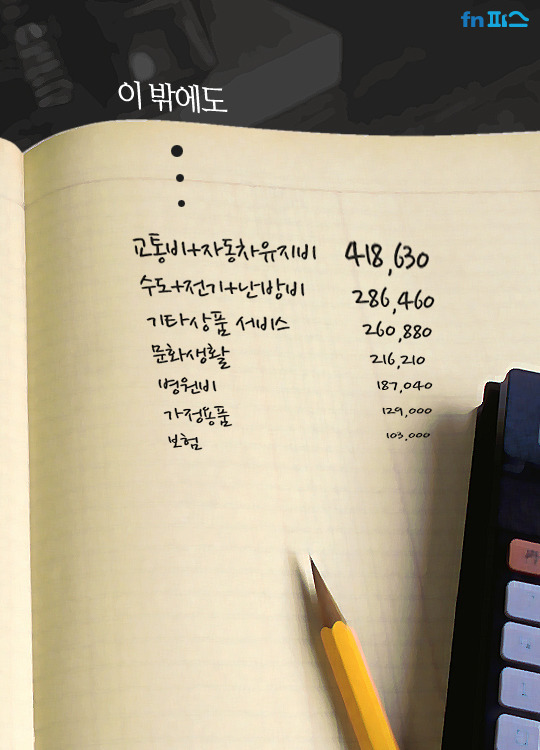 fn파스
이 밖에도
교통비+자동차유지비 418,630
수도+전기+난방비 286,460
기타상품 서비스 260,880
문화생활 216,210
병원비 187,040
가정용품 129,000
보험 103,000